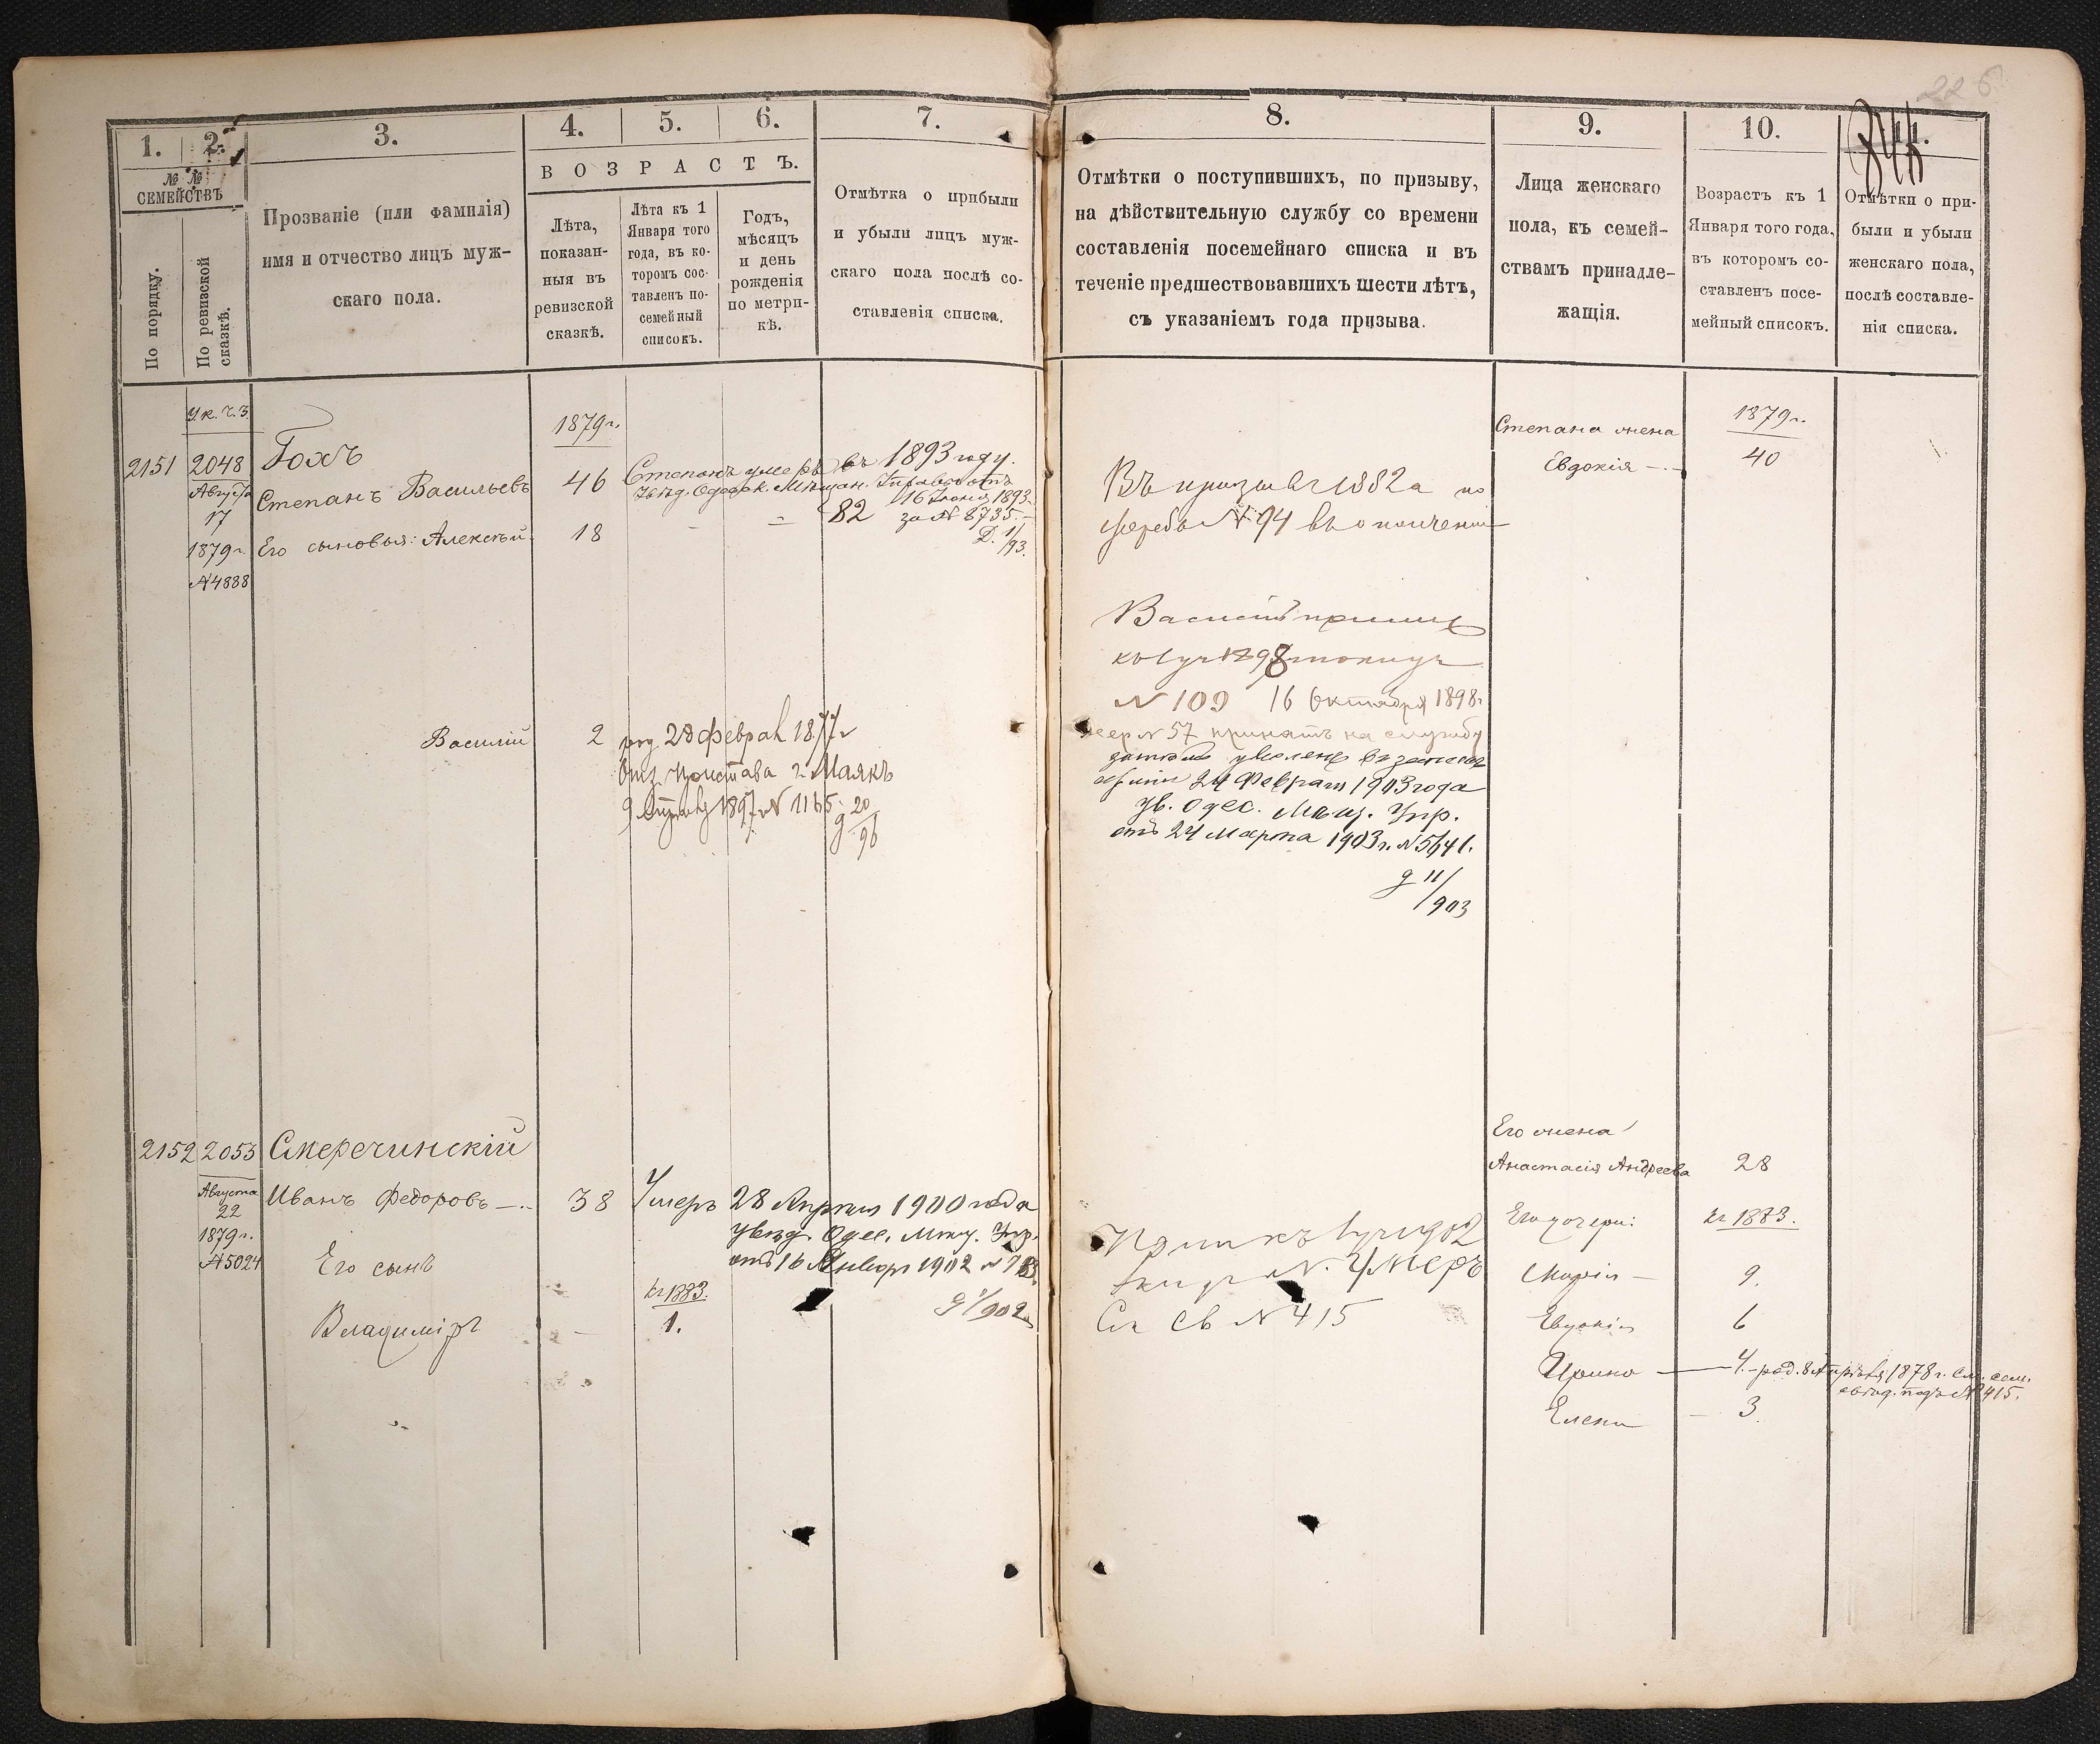 1.
2.
3.
4.
5.
6.
7.
№ №
СЕМЕЙСТВЪ
По порядку.
По ревизской
сказкѣ.
Прозваніе (или фамилія)
имя и отчество лицъ муж-
скаго пола.
ВОЗРАСТЪ.
Лѣта,
показан-
ныя въ
ревизской
сказкѣ.
Лѣта къ 1
Января того
года, въ ко-
торомъ сос-
тавленъ по-
семейный
списокъ.
Годъ,
мѣсяцъ
и день
рожденія
по метри-
кѣ.
Отмѣтка о прибыли
и убыли лицъ муж-
скаго пола послѣ со-
ставленія списка.
Ук. г. З.
2151
2048
Августа
17
1879 г.
№ 4888
Гохъ
Степанъ Васильевъ
Его сыновья: Алексѣй
1879 г.
46
18
Степанъ умеръ въ 1893 году.
Увѣд. Одесск. Мѣщан. Управы отъ
16 Іюня 1893 г.
82
за № 8735.
Д. 1/93.
Василій
2
род. 28 Февраля 1877 г.
Пристава г. Маякъ
9 1897 № 1165
20
96
2152
2053
Августа
22
1879 г.
№ 5024
Смеречинскій
Иванъ Федоровъ
38
Умеръ 28 Апрѣля 1900 года
увѣд. Одес. Мѣщ. Упр.
отъ 16 Января 1902
/902
Его сынъ
Владиміръ
къ 1883.
1.
226
8.
9.
10.
11.
Отмѣтки о поступившихъ, по призыву,
на дѣйствительную службу со времени
составленія посемейнаго списка и въ
теченіе предшествовавшихъ шести лѣтъ,
съ указаніемъ года призыва.
Лица женскаго
пола, къ семей-
ствамъ принадле-
жащія.
Возрастъ къ 1
Января того года,
въ которомъ со-
ставленъ посе-
мейный списокъ.
Отмѣтки о при-
были и убыли
женскаго пола,
послѣ составле-
нія списка.
Въ призывъ 1882 а по
жеребью № 94 въ ополченіи
Василій
1898
№ 109 16 Октября 1898 г.
жер № 57 принятъ на службу
уволенъ въ запасъ
арміи 24 Февраля 1903 года
ув. Одес. Мѣщ. Упр.
отъ 24 Марта 1903 г. № 5641.
11/903
Степана жена
Евдокія
1879 г.
40
умеръ
№ 415
Его жена
Анастасія Андреева
28
Его дочери:
къ 1883.
Марія
9.
Евдокія
6
Ирина
4. род. 8 Апрѣля 1878 г. См. сем.
подъ № 415.
Елена
3